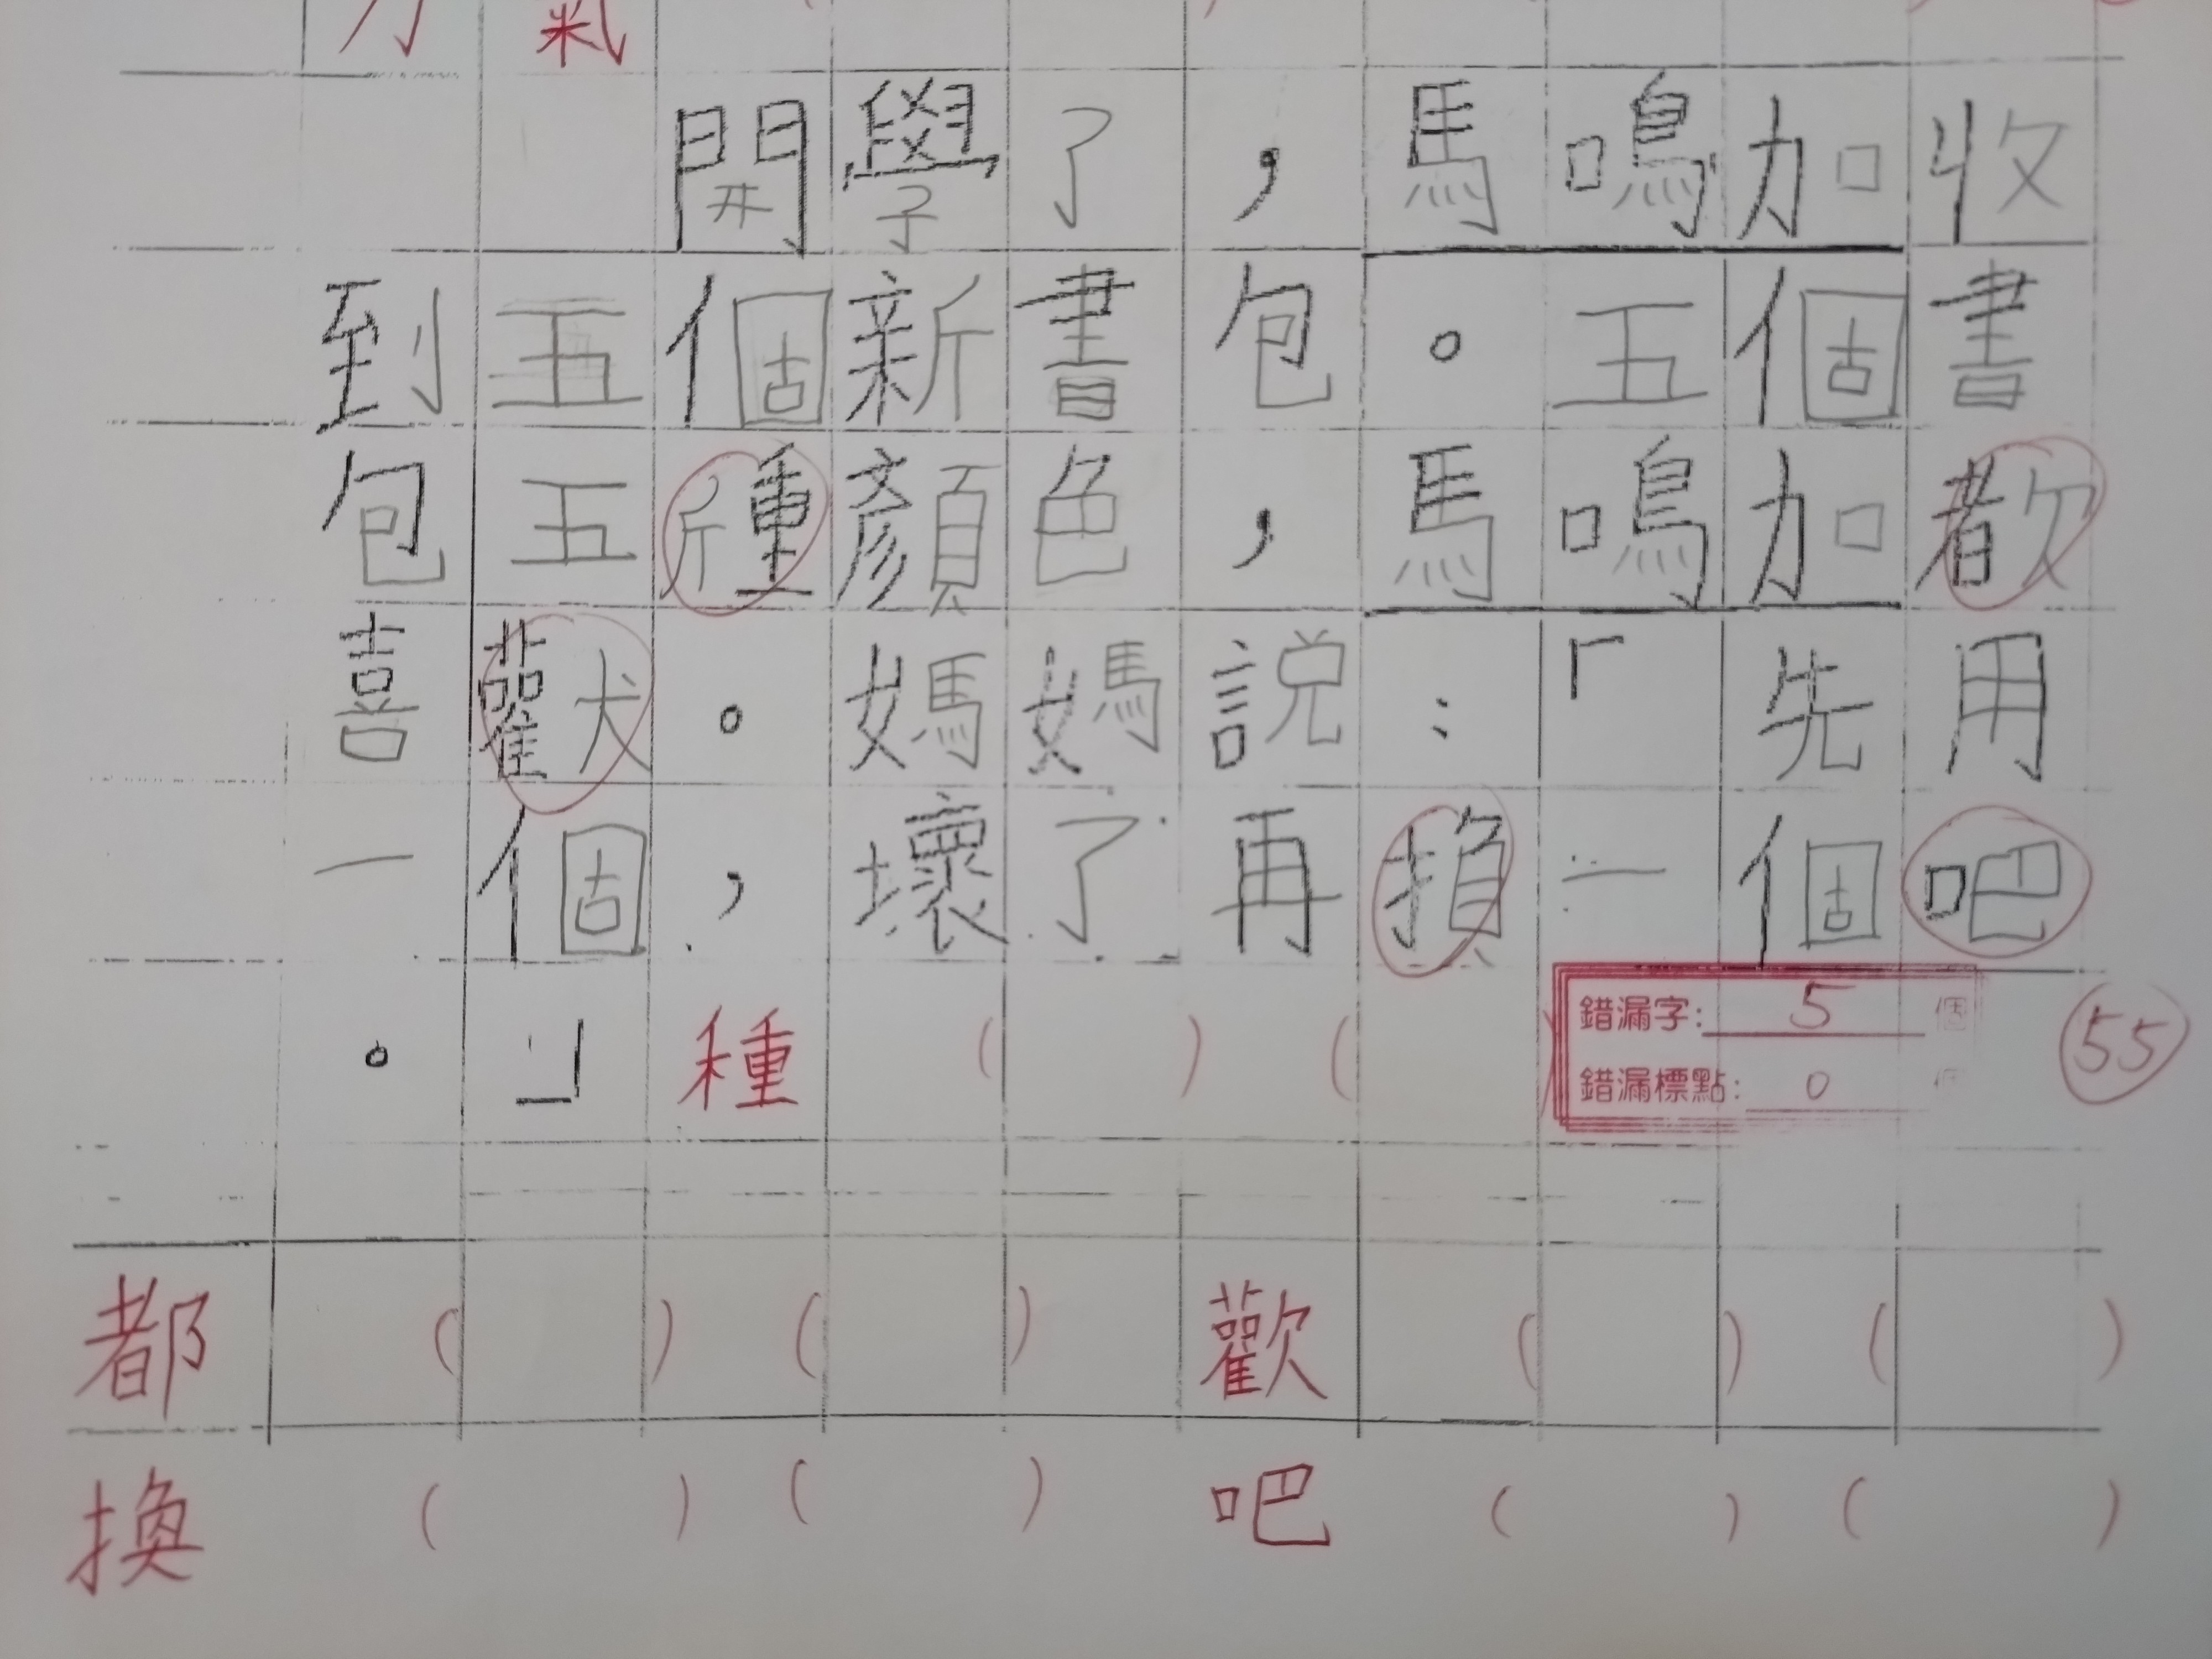 氣
開學了，馬鳴加收
到五個新書包。五個書
包五顏色，馬鳴加
喜。媽媽說：「先用
一個，壞了再一個吧
。」種（ ）（ ）
錯漏字：5個
錯漏標點：0個
55
都（ ）（ ）歡（ ）（ ）
換（ ）（ ）吧（ ）（ ）